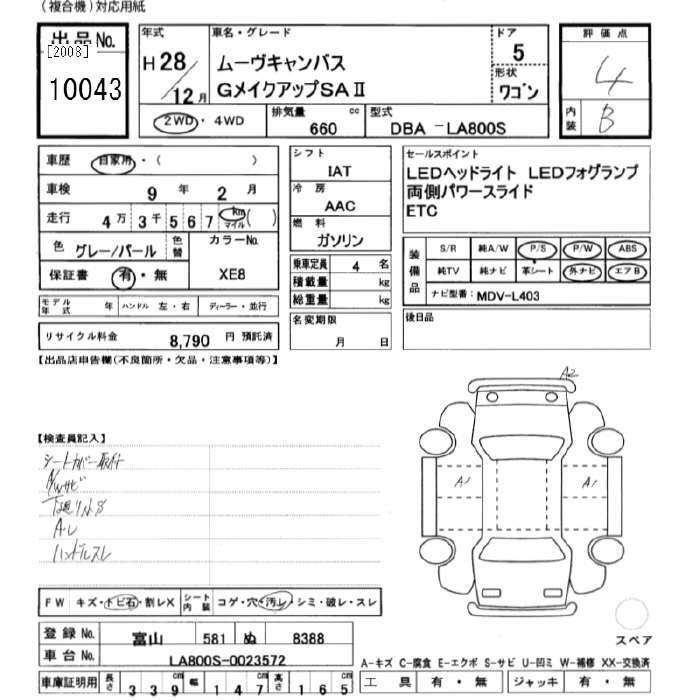 (複合機)対応用紙
出品No.
[2008]
10043
年式
H28/12月
車名・グレード
ムーヴキャンバス
GメイクアップSAⅡ
ドア
5
形状
ワゴン
評価点
4
内装
B
2WD・4WD
排気量
660 cc
型式
DBA -LA800S
車歴 自家用・( )
車検 9年 2月
走行 4万3千567 km マイル ( )
色 グレー/パール 色替
カラーNo.
XE8
保証書 有・無
モデル年式 年 ハンドル 左・右 ディーラー・並行
リサイクル料金 8,790 円 預託済
シフト
IAT
冷房
AAC
燃料
ガソリン
乗車定員 4 名
積載量 kg
総重量 kg
名変期限
月 日
セールスポイント
LEDヘッドライト LEDフォグランプ
両側パワースライド
ETC
装備品
S/R 純A/W P/S P/W ABS
純TV 純ナビ 革シート 外ナビ エアB
ナビ型番: MDV-L403
後日品
【出品店申告欄(不良箇所・欠品・注意事項等)】
【検査員記入】
シートカバー取付
A/Wサビ
下廻りサビ
Aし
ハンドルスレ
A2
A1
A1
スペア
FW キズ・トビ石・割レX
シート内装 コゲ・穴・汚レ・シミ・破レ・スレ
登録No. 富山 581 ぬ 8388
車台No. LA800S-0023572
車庫証明用 長さ 339 幅 147 高さ 165
A-キズ C-腐食 E-エクボ S-サビ U-凹ミ W-補修 XX-交換済
工具 有・無 ジャッキ 有・無